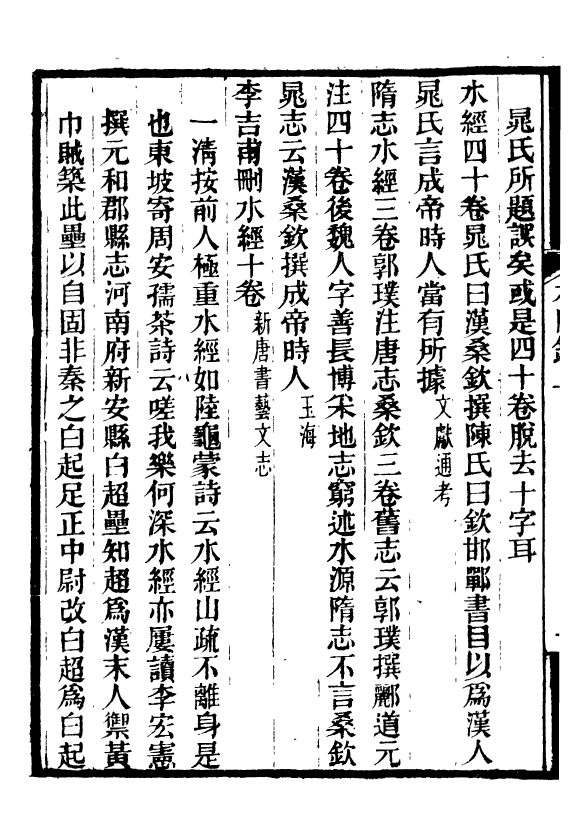 晁氏所題誤矣或是四十卷脫去十字耳
水經四十卷晁氏曰漢桑欽撰陳氏曰欽邯鄲書目以爲漢人
晁氏言成帝時人當有所據文獻通考
隋志水經三卷郭璞注唐志桑欽三卷舊志云郭璞撰酈道元
注四十卷後魏人字善長博采地志窮述水源隋志不言桑欽
晁志云漢桑欽撰成帝時人玉海
李吉甫刪水經十卷新唐書藝文志
一淸按前人極重水經如陸龜蒙詩云水經山疏不離身是
也東坡寄周安孺茶詩云嗟我樂何深水經亦屢讀李宏憲
撰元和郡縣志河南府新安縣白超壘知超爲漢末人禦黃
巾賊築此壘以自固非秦之白起足正中尉改白超爲白起